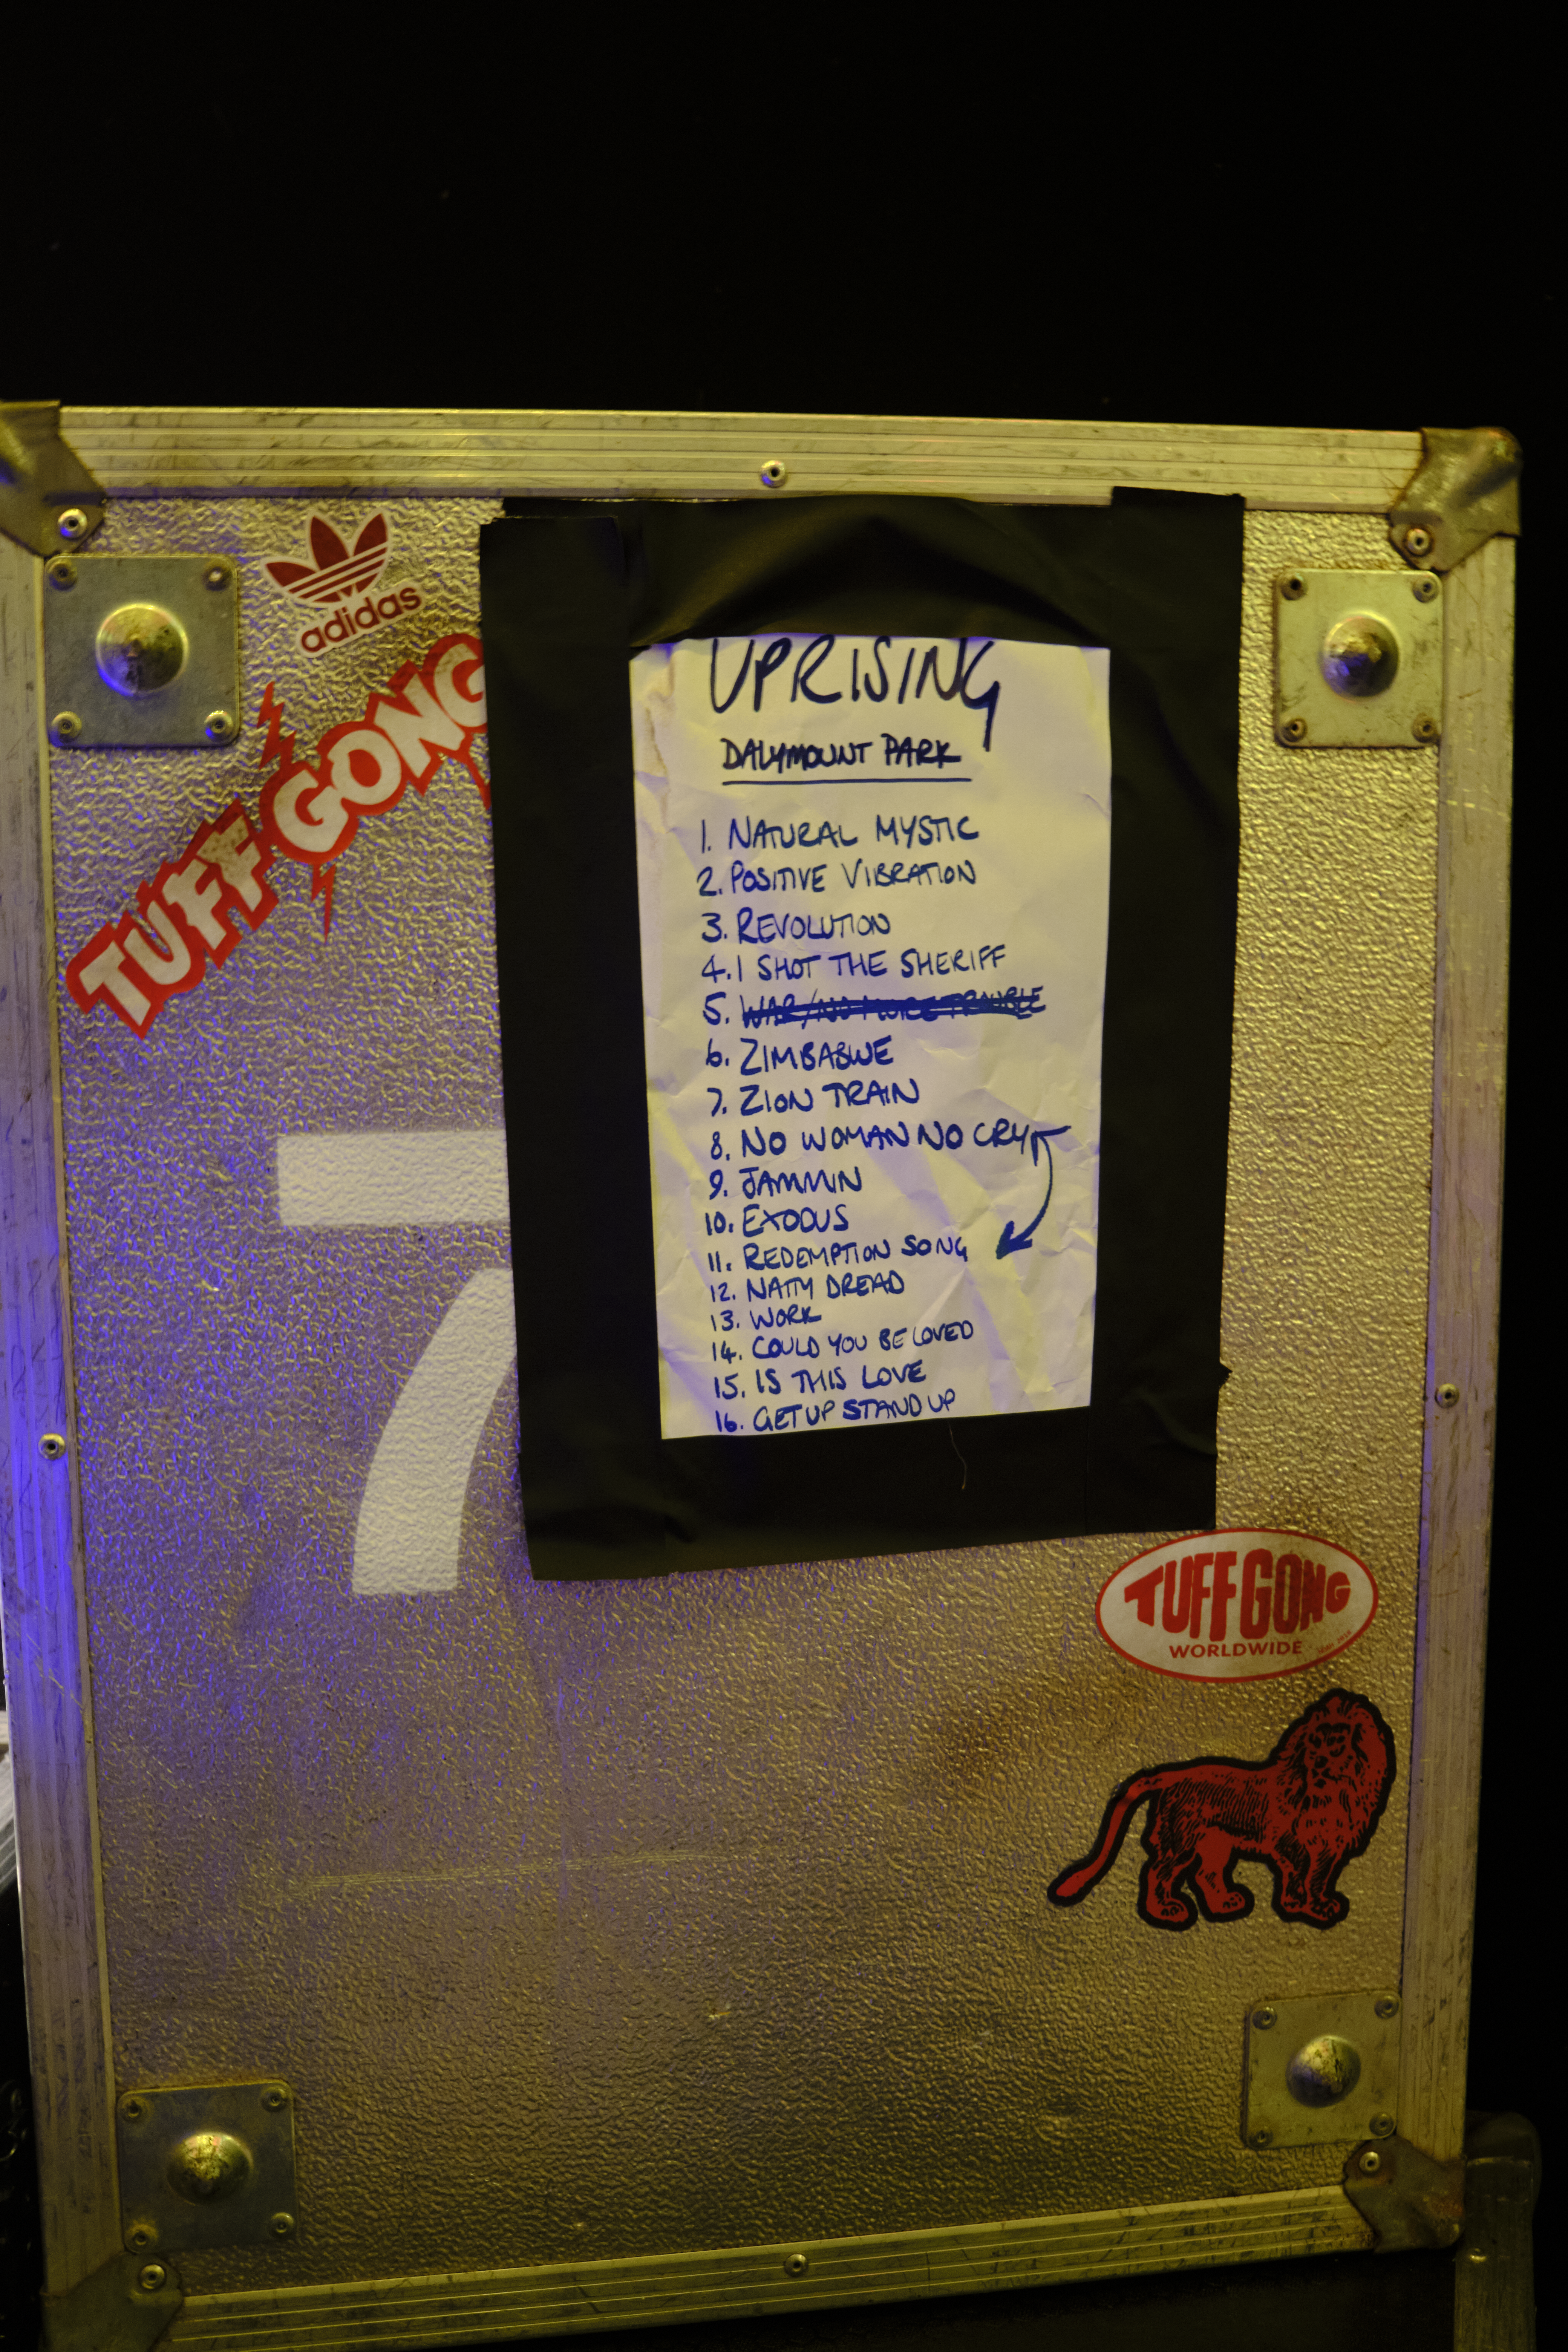 adidas
TUFF GONG
UPRISING
DALYMOUNT PARK
1. NATURAL MYSTIC
2. POSITIVE VIBRATION
3. REVOLUTION
4. I SHOT THE SHERIFF
5. WAR/NO MORE TROUBLE
6. ZIMBABWE
7. ZION TRAIN
8. NO WOMAN NO CRY
9. JAMMIN
10. EXODUS
11. REDEMPTION SONG
12. NATTY DREAD
13. WORK
14. COULD YOU BE LOVED
15. IS THIS LOVE
16. GET UP STAND UP
7
TUFF GONG
WORLDWIDE